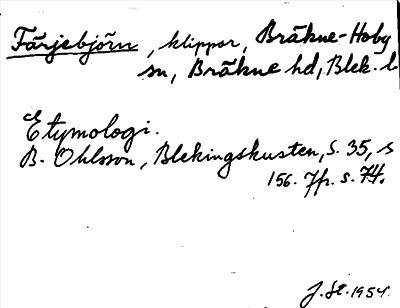 Färjebjörn, klippor, Bräkne-Hoby
sn, Bräkne hd, Blek. l
Etymologi.
B. Ohlsson, Blekingskusten, s. 35, s
156. Jfr. s. 74.
J. St. 1954.